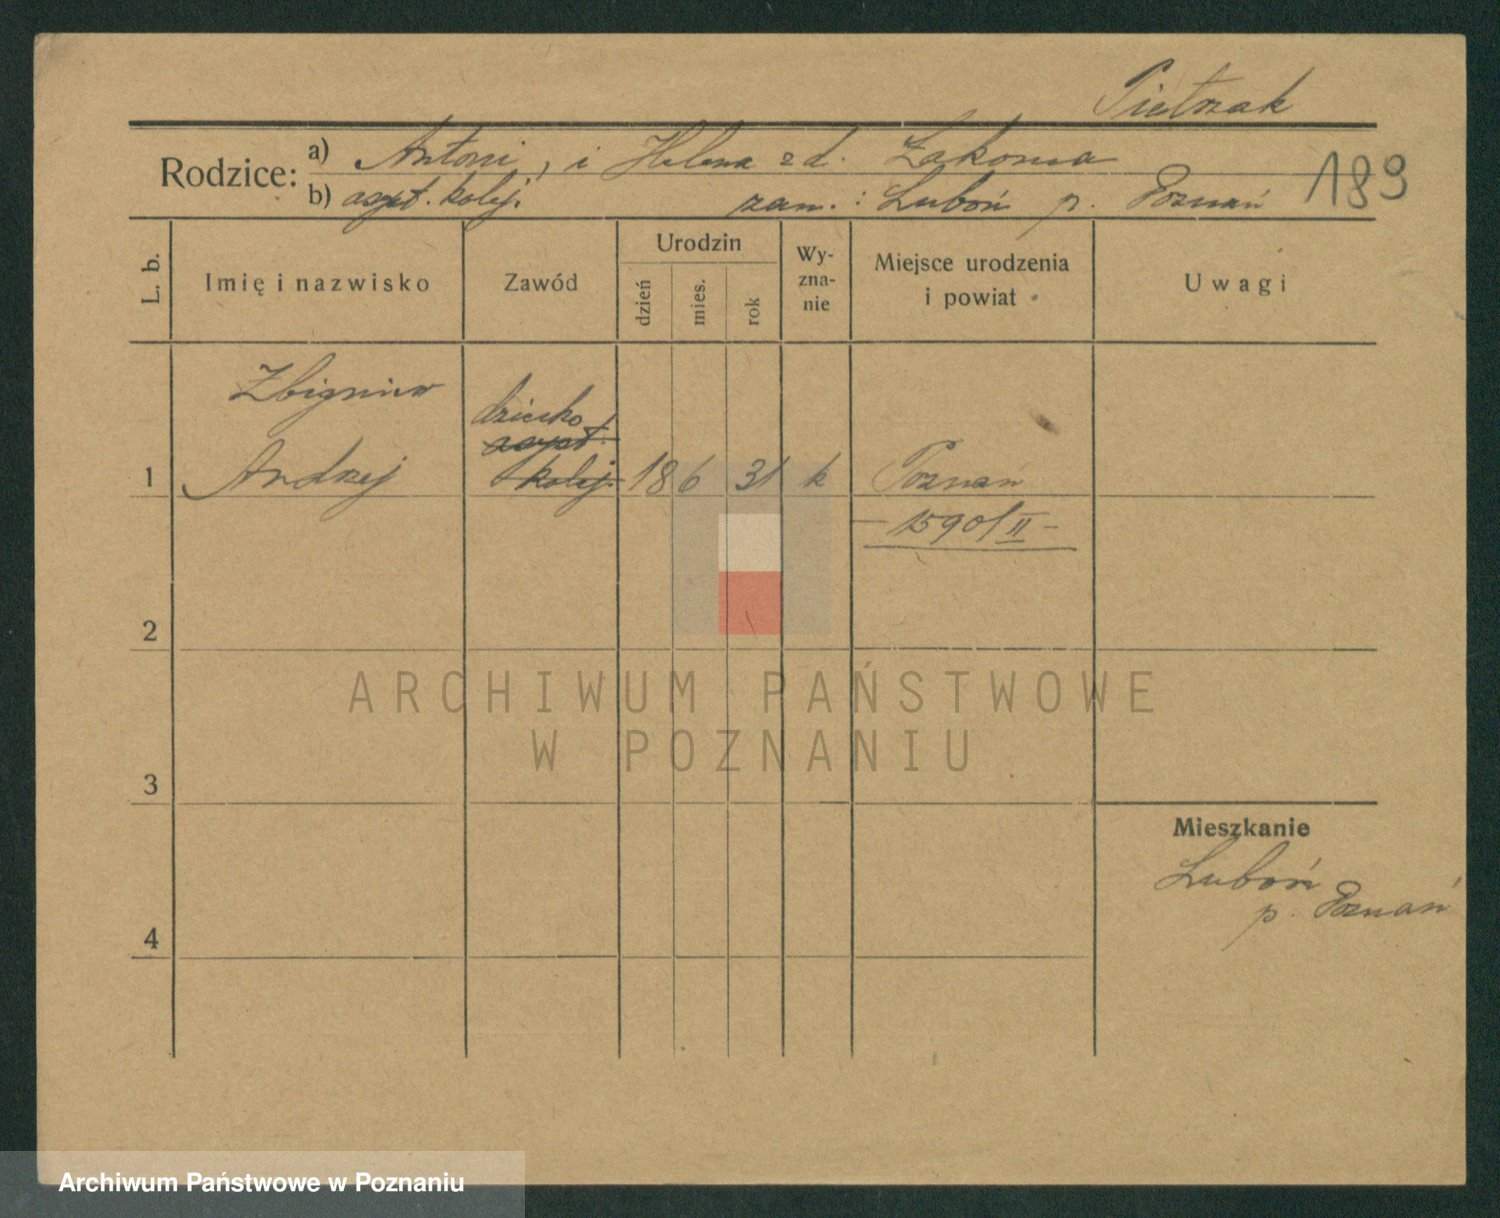 Pietrzak
Rodzice: a) Antoni, i Helena z d. Zakowna
b) asyst. kolej. zam. : Luboń p. Poznań 189
L. b. Imię i nazwisko Zawód Urodzin dzień mies. rok Wy-zna-nie Miejsce urodzenia i powiat Uwagi
Zbigniew
dziecko
asyst.
1 Andrzej kolej. 18 6 31 k Poznań
– 1590/II –
2
ARCHIWUM PAŃSTWOWE
W POZNANIU
3
Mieszkanie
Luboń
p. Poznań
4
Archiwum Państwowe w Poznaniu